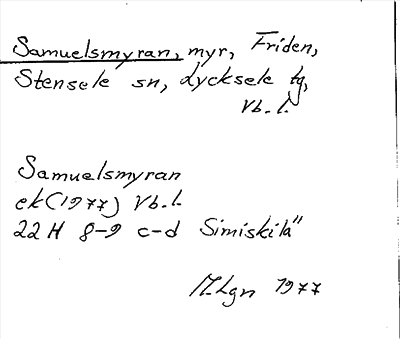 Samuelsmyran, myr, Friden,
Stensele sn, Lycksele tg,
Vb. l.
Samuelsmyran
ek (1977) Vb. l.
22 H 8-9 c-d Simiskilä"
M.Lgn 1977